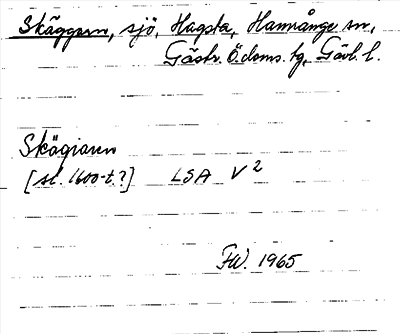 Skäggen, sjö, Hagsta, Hamrånge sn,
Gästr. Ö. doms. tg, Gävl. l.
Skägiaren
[sl. 1600-t.?] LSA V²
FW. 1965